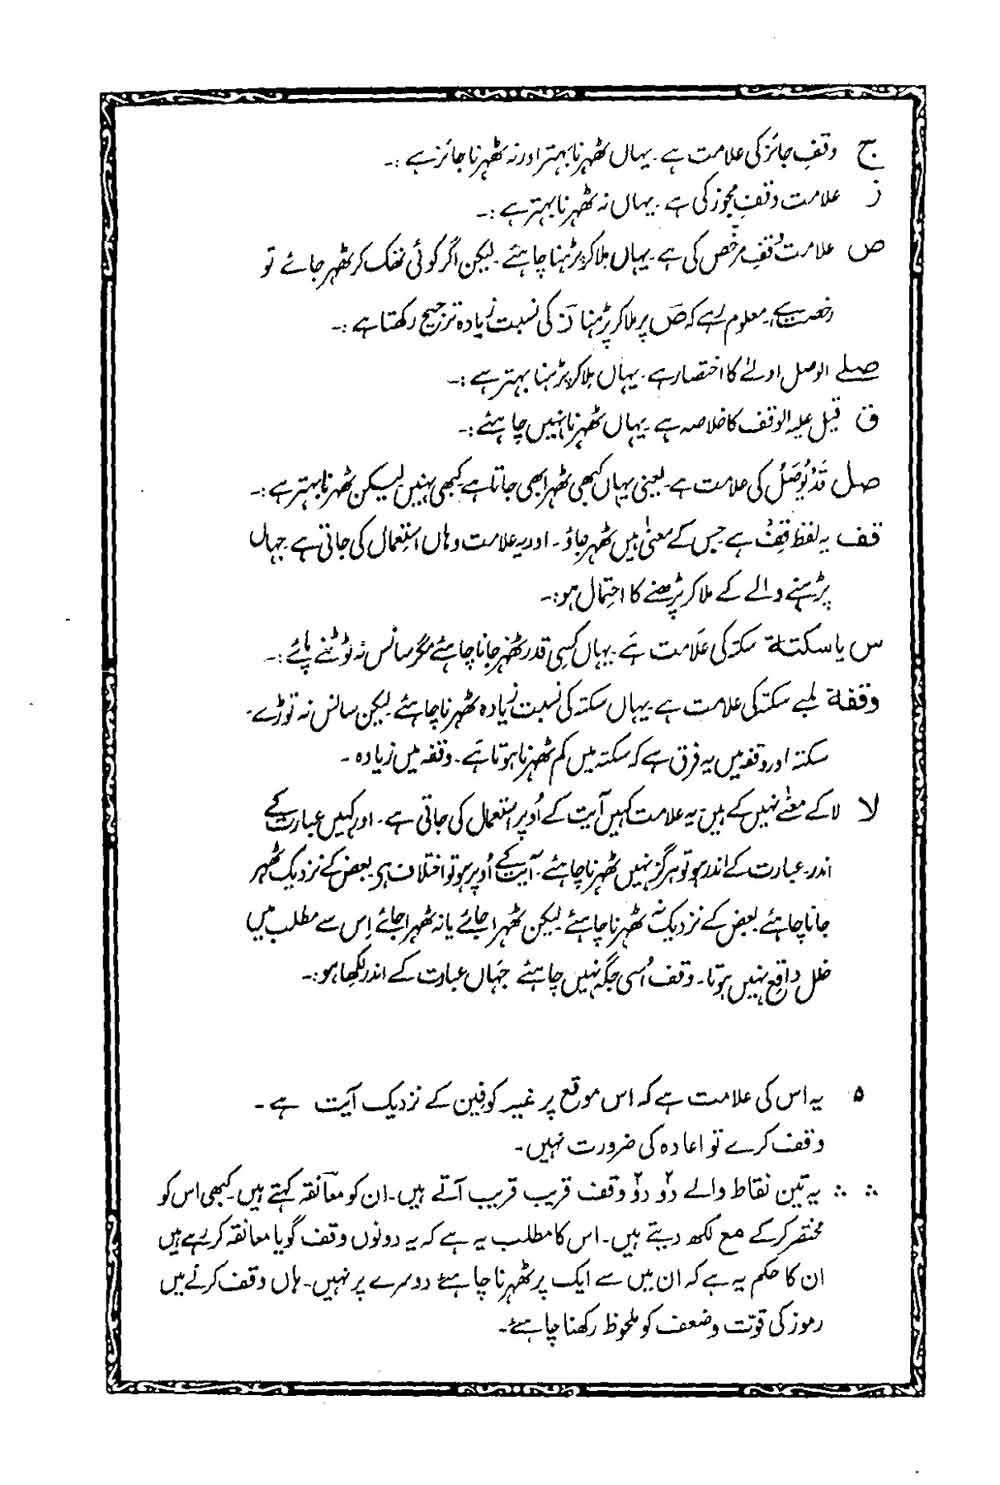 ج وقفِ جائز کی علامت ہے۔ یہاں ٹھہرنا بہتر اور نہ ٹھہرنا جائز ہے :۔
ز علامت وقفِ مجوز کی ہے۔ یہاں نہ ٹھہرنا بہتر ہے :۔
ص علامت وقفِ مرخص کی ہے۔ یہاں ملا کر پڑہنا چاہئے۔ لیکن اگر کوئی تھک کر ٹھہر جائے تو
رخصت ہے۔ معلوم رہے کہ صؔ پر ملا کر پڑہنا زؔ کی نسبت زیادہ ترجیح رکھتا ہے :۔
صلے الوصل اولےٰ کا اختصار ہے۔ یہاں ملا کر پڑہنا بہتر ہے :۔
ق قیل علیہ الوقف کا خلاصہ ہے۔ یہاں ٹھہرنا نہیں چاہئے :۔
صل قَدْ یُوصَلُ کی علامت ہے۔ یعنی یہاں کبھی ٹھہرا بھی جاتا ہے کبھی نہیں لیکن ٹھہرنا بہتر ہے :۔
قف یہ لفظ قِفْ ہے جس کے معنیٰ ہیں ٹھہر جاؤ۔ اور یہ علامت وہاں استِعمال کی جاتی ہے جہاں
پڑہنے والے کے ملا کر پڑھنے کا احتِمال ہو :۔
س یا سکتة سکتہ کی علامت ہے۔ یہاں کِسی قدر ٹھہر جانا چاہئے مگر سانس نہ ٹوٹنے پائے :۔
وقفة لمبے سکتہ کی علامت ہے۔ یہاں سکتہ کی نسبت زیادہ ٹھہرنا چاہئے۔ لیکن سانس نہ توڑے۔
سکتہ اور وقفہ میں یہ فرق ہے کہ سکتہ میں کم ٹھہرنا ہوتا ہے۔ وقفہ میں زیادہ۔
لا لا کے معنےٰ نہیں کے ہیں۔ یہ علامت کہیں آیت کے اُوپر استِعمال کی جاتی ہے۔ اور کہیں عبارت کے
اندر۔ عبارت کے اندر ہو تو ہرگز نہیں ٹھہرنا چاہئے۔ آیت کے اُوپر ہو تو اختلاف ہی بعض کے نزدیک ٹھہر
جانا چاہئے بعض کے نزدیک نہ ٹھہرنا چاہئے لیکن ٹھہرا جائے یا نہ ٹھہرا جائے اِس سے مطلب میں
خلل واقع نہیں ہوتا۔ وقف اُسی جگہ نہیں چاہئے جہاں عبارت کے اندر لکھا ہو :۔
۵ یہ اس کی علامت ہے کہ اس موقع پر غیر کوفیین کے نزدیک آیت ہے۔
وقف کرے تو اعادہ کی ضرورت نہیں۔
∴ ∴ یہ تین نقاط والے دو دو وقف قریب قریب آتے ہیں۔ ان کو معانقہ کہتے ہیں۔ کبھی اس کو
مختصر کر کے مع لکھ دیتے ہیں۔ اس کا مطلب یہ ہے کہ یہ دونوں وقف گویا معانقہ کر رہے ہیں
ان کا حکم یہ ہے کہ ان میں سے ایک پر ٹھہرنا چاہئے دوسرے پر نہیں۔ ہاں وقف کرنے میں
رموز کی قوّت و ضعف کو ملحوظ رکھنا چاہئے۔